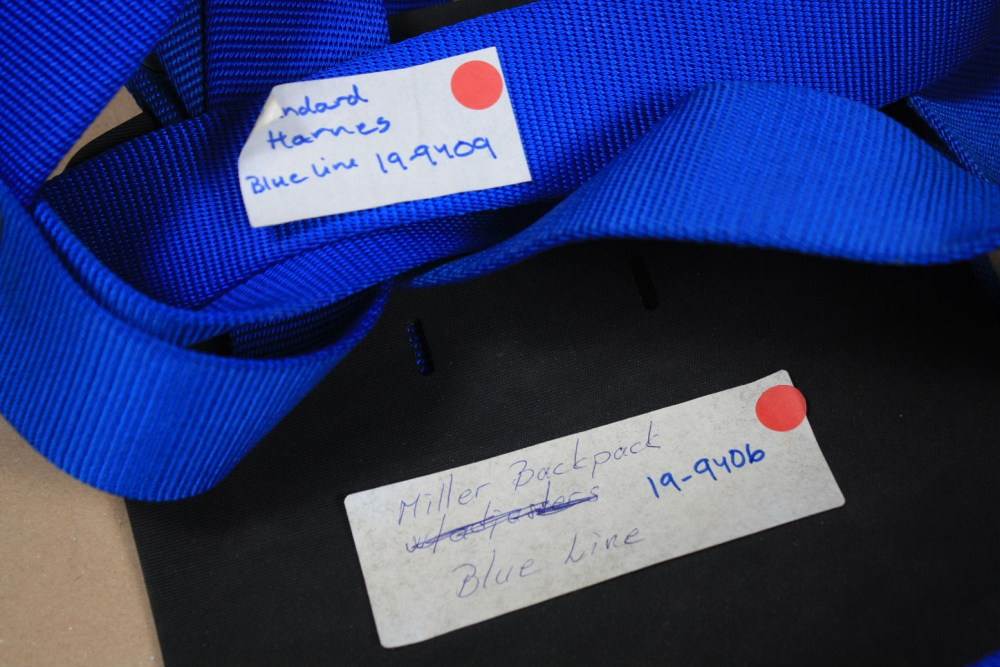 ndard
Harnes
Blue Line 19-9409
Miller Backpack
w/adjesters 19-9406
Blue Line